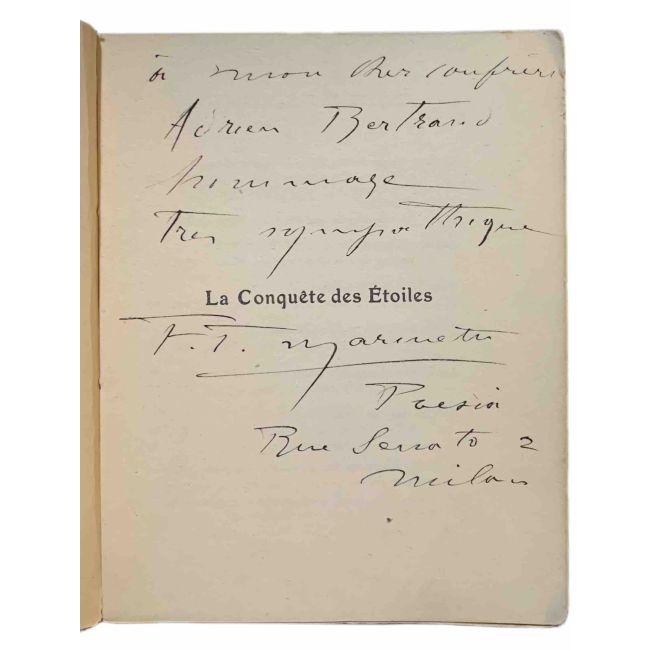 à mon cher confrère
Adrien Bertrand
hommage
Très sympathique
La Conquête des Étoiles
F. T. Marinetti
Poesia
Rue Senato 2
Milan